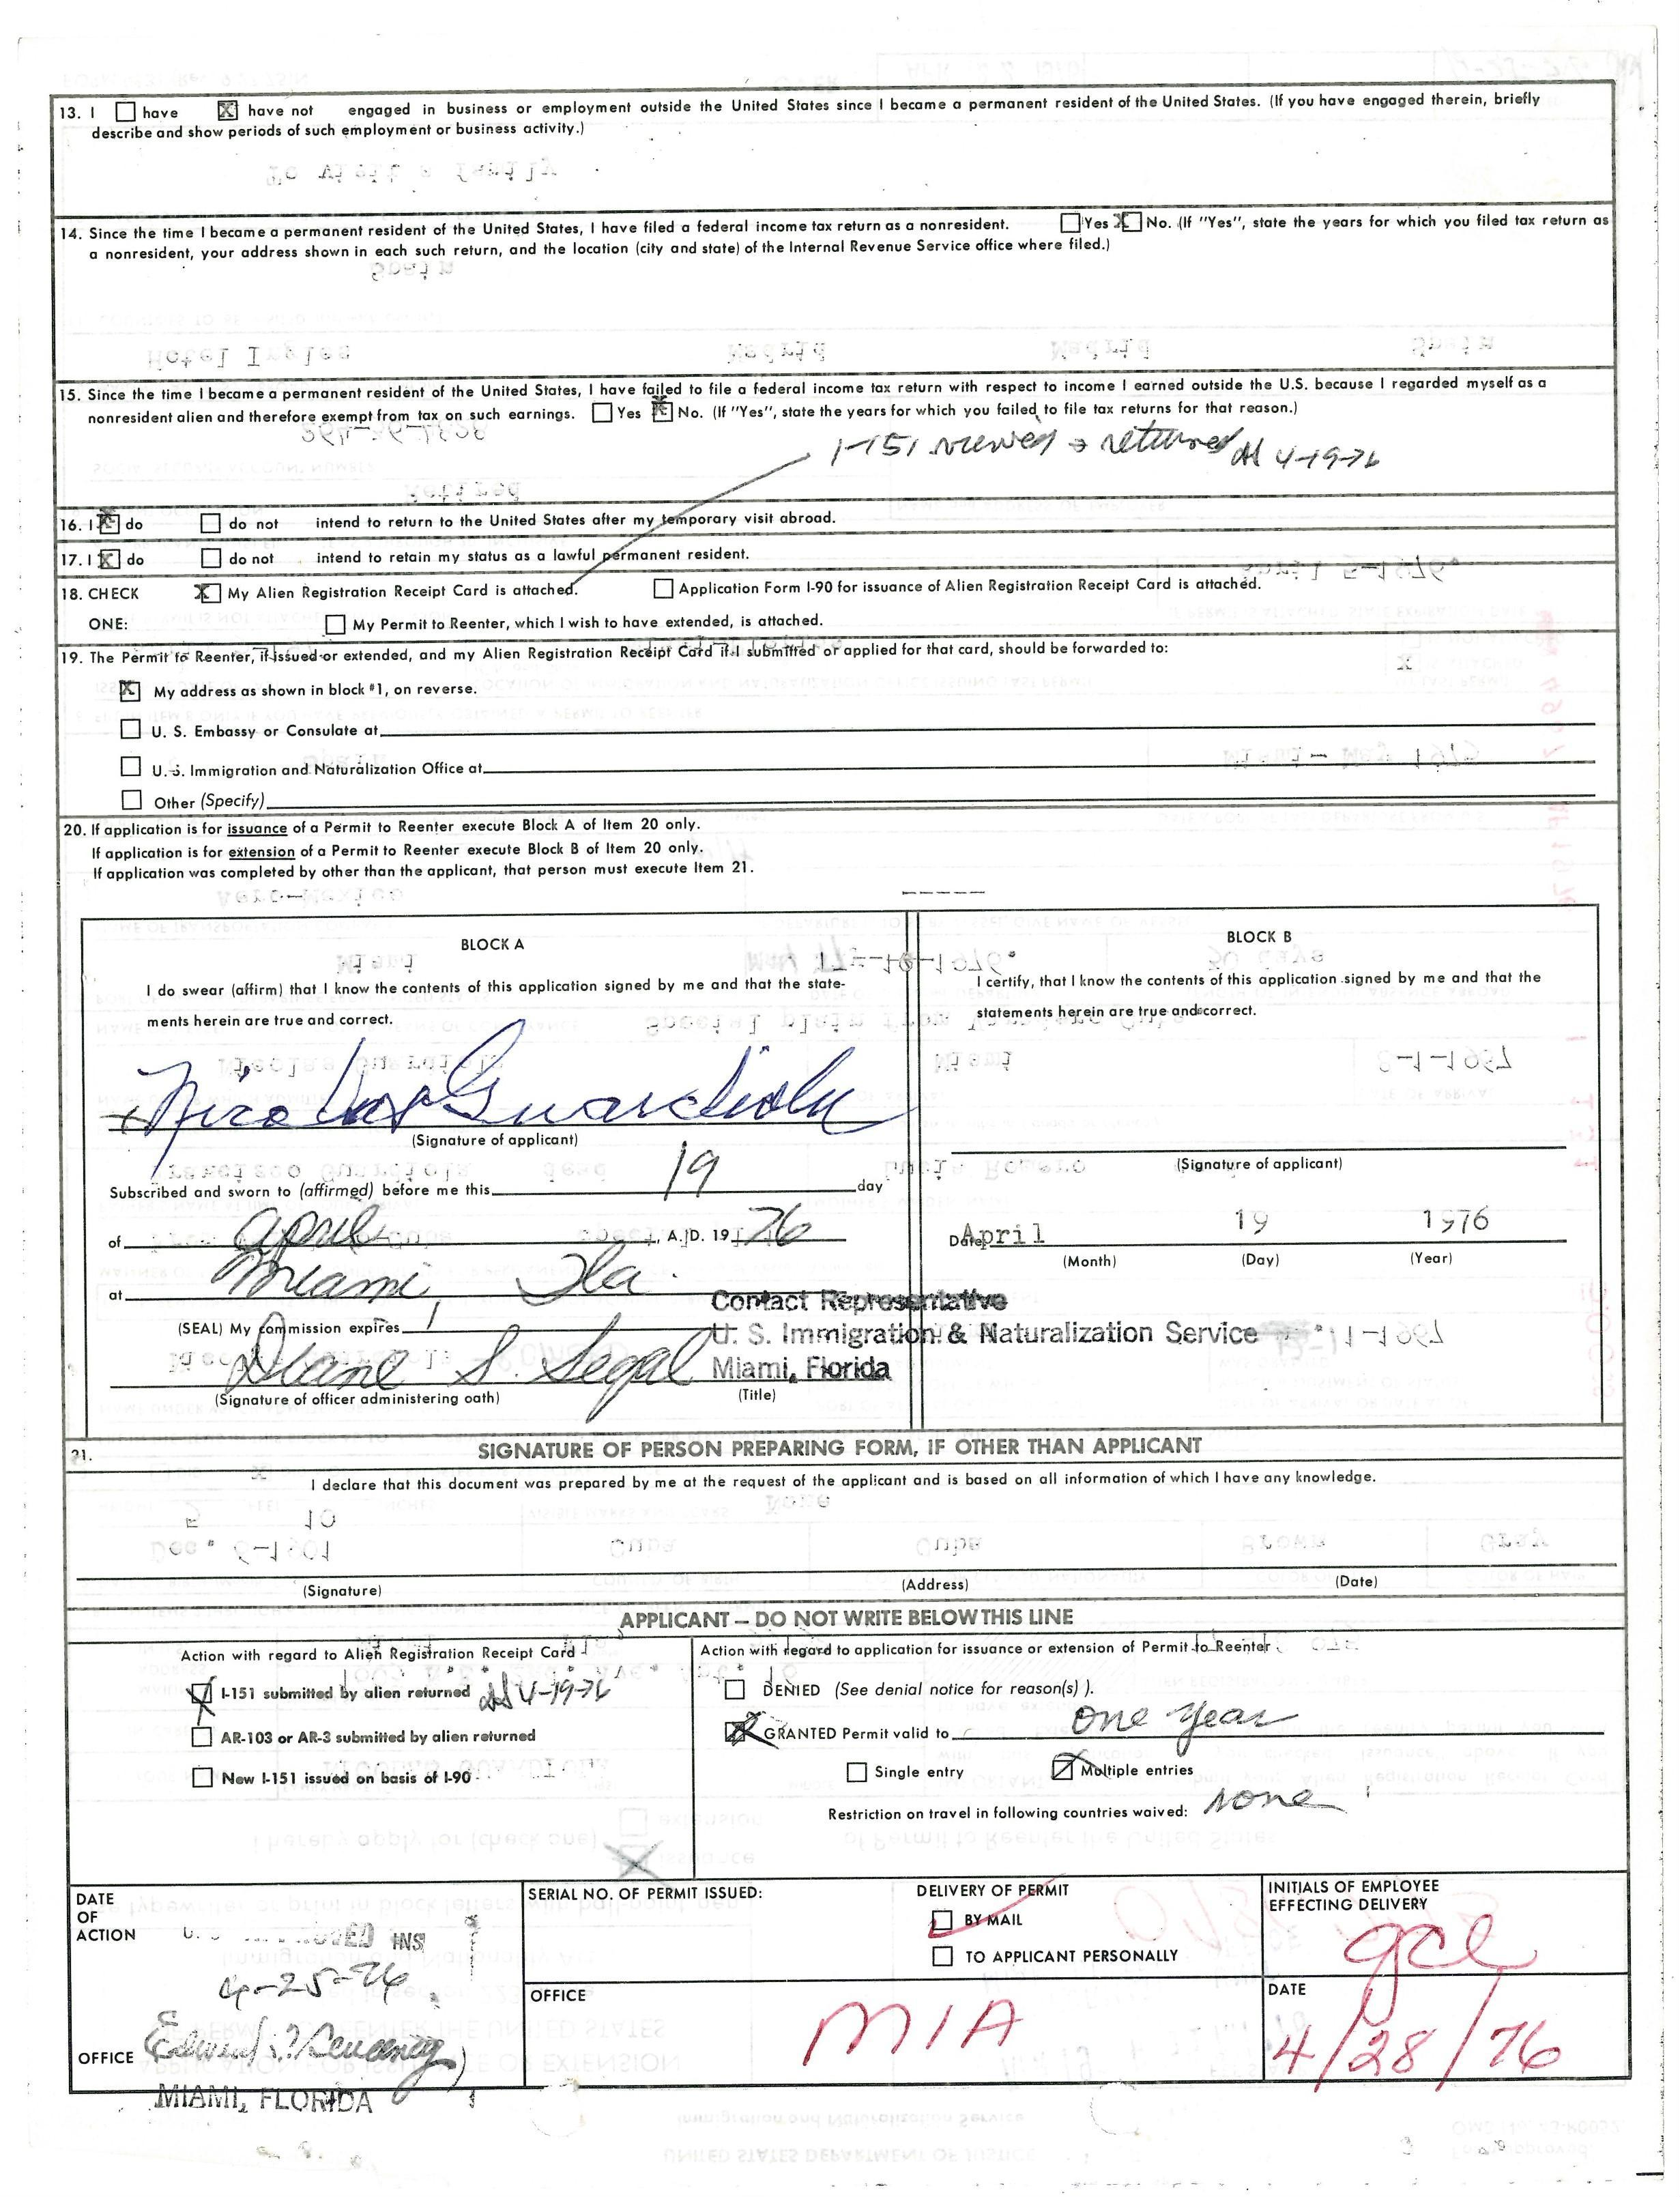 13. I ☐ have ☒ have not engaged in business or employment outside the United States since I became a permanent resident of the United States. (If you have engaged therein, briefly
describe and show periods of such employment or business activity.)
14. Since the time I became a permanent resident of the United States, I have filed a federal income tax return as a nonresident. ☐ Yes ☒ No. (If "Yes", state the years for which you filed tax return as
a nonresident, your address shown in each such return, and the location (city and state) of the Internal Revenue Service office where filed.)
15. Since the time I became a permanent resident of the United States, I have failed to file a federal income tax return with respect to income I earned outside the U.S. because I regarded myself as a
nonresident alien and therefore exempt from tax on such earnings. ☐ Yes ☒ No. (If "Yes", state the years for which you failed to file tax returns for that reason.)
I-151 viewed & returned 4-19-76
16. I ☒ do ☐ do not intend to return to the United States after my temporary visit abroad.
17. I ☒ do ☐ do not intend to retain my status as a lawful permanent resident.
18. CHECK ☒ My Alien Registration Receipt Card is attached. ☐ Application Form I-90 for issuance of Alien Registration Receipt Card is attached.
ONE: ☐ My Permit to Reenter, which I wish to have extended, is attached.
19. The Permit to Reenter, if issued or extended, and my Alien Registration Receipt Card if I submitted or applied for that card, should be forwarded to:
☒ My address as shown in block #1, on reverse.
☐ U. S. Embassy or Consulate at
☐ U.S. Immigration and Naturalization Office at
☐ Other (Specify)
20. If application is for issuance of a Permit to Reenter execute Block A of Item 20 only.
If application is for extension of a Permit to Reenter execute Block B of Item 20 only.
If application was completed by other than the applicant, that person must execute Item 21.
BLOCK A
I do swear (affirm) that I know the contents of this application signed by me and that the state-
ments herein are true and correct.
Nicolas Guardiola
(Signature of applicant)
Subscribed and sworn to (affirmed) before me this 19 day
of April, A.D. 19 76
at Miami, Fla.
(SEAL) My commission expires
Diane S. Segal
(Signature of officer administering oath)
Contact Representative
U. S. Immigration & Naturalization Service
Miami, Florida
(Title)
BLOCK B
I certify, that I know the contents of this application signed by me and that the
statements herein are true and correct.
(Signature of applicant)
Date April 19 1976
(Month) (Day) (Year)
21. SIGNATURE OF PERSON PREPARING FORM, IF OTHER THAN APPLICANT
I declare that this document was prepared by me at the request of the applicant and is based on all information of which I have any knowledge.
(Signature) (Address) (Date)
APPLICANT — DO NOT WRITE BELOW THIS LINE
Action with regard to Alien Registration Receipt Card
☒ I-151 submitted by alien returned 4-19-76
☐ AR-103 or AR-3 submitted by alien returned
☐ New I-151 issued on basis of I-90
Action with regard to application for issuance or extension of Permit to Reenter
☐ DENIED (See denial notice for reason(s) ).
☒ GRANTED Permit valid to one year
☐ Single entry ☒ Multiple entries
Restriction on travel in following countries waived: none
DATE
OF
ACTION
INS
4-25-76
OFFICE
MIAMI, FLORIDA
SERIAL NO. OF PERMIT ISSUED:
DELIVERY OF PERMIT
☑ BY MAIL
☐ TO APPLICANT PERSONALLY
INITIALS OF EMPLOYEE
EFFECTING DELIVERY
gcl
OFFICE
MIA
DATE
4/28/76